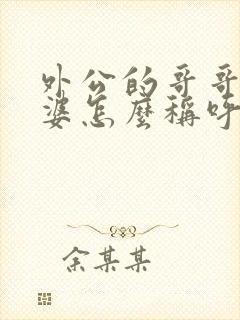 外公的哥哥
婆怎麼稱呼
余某某